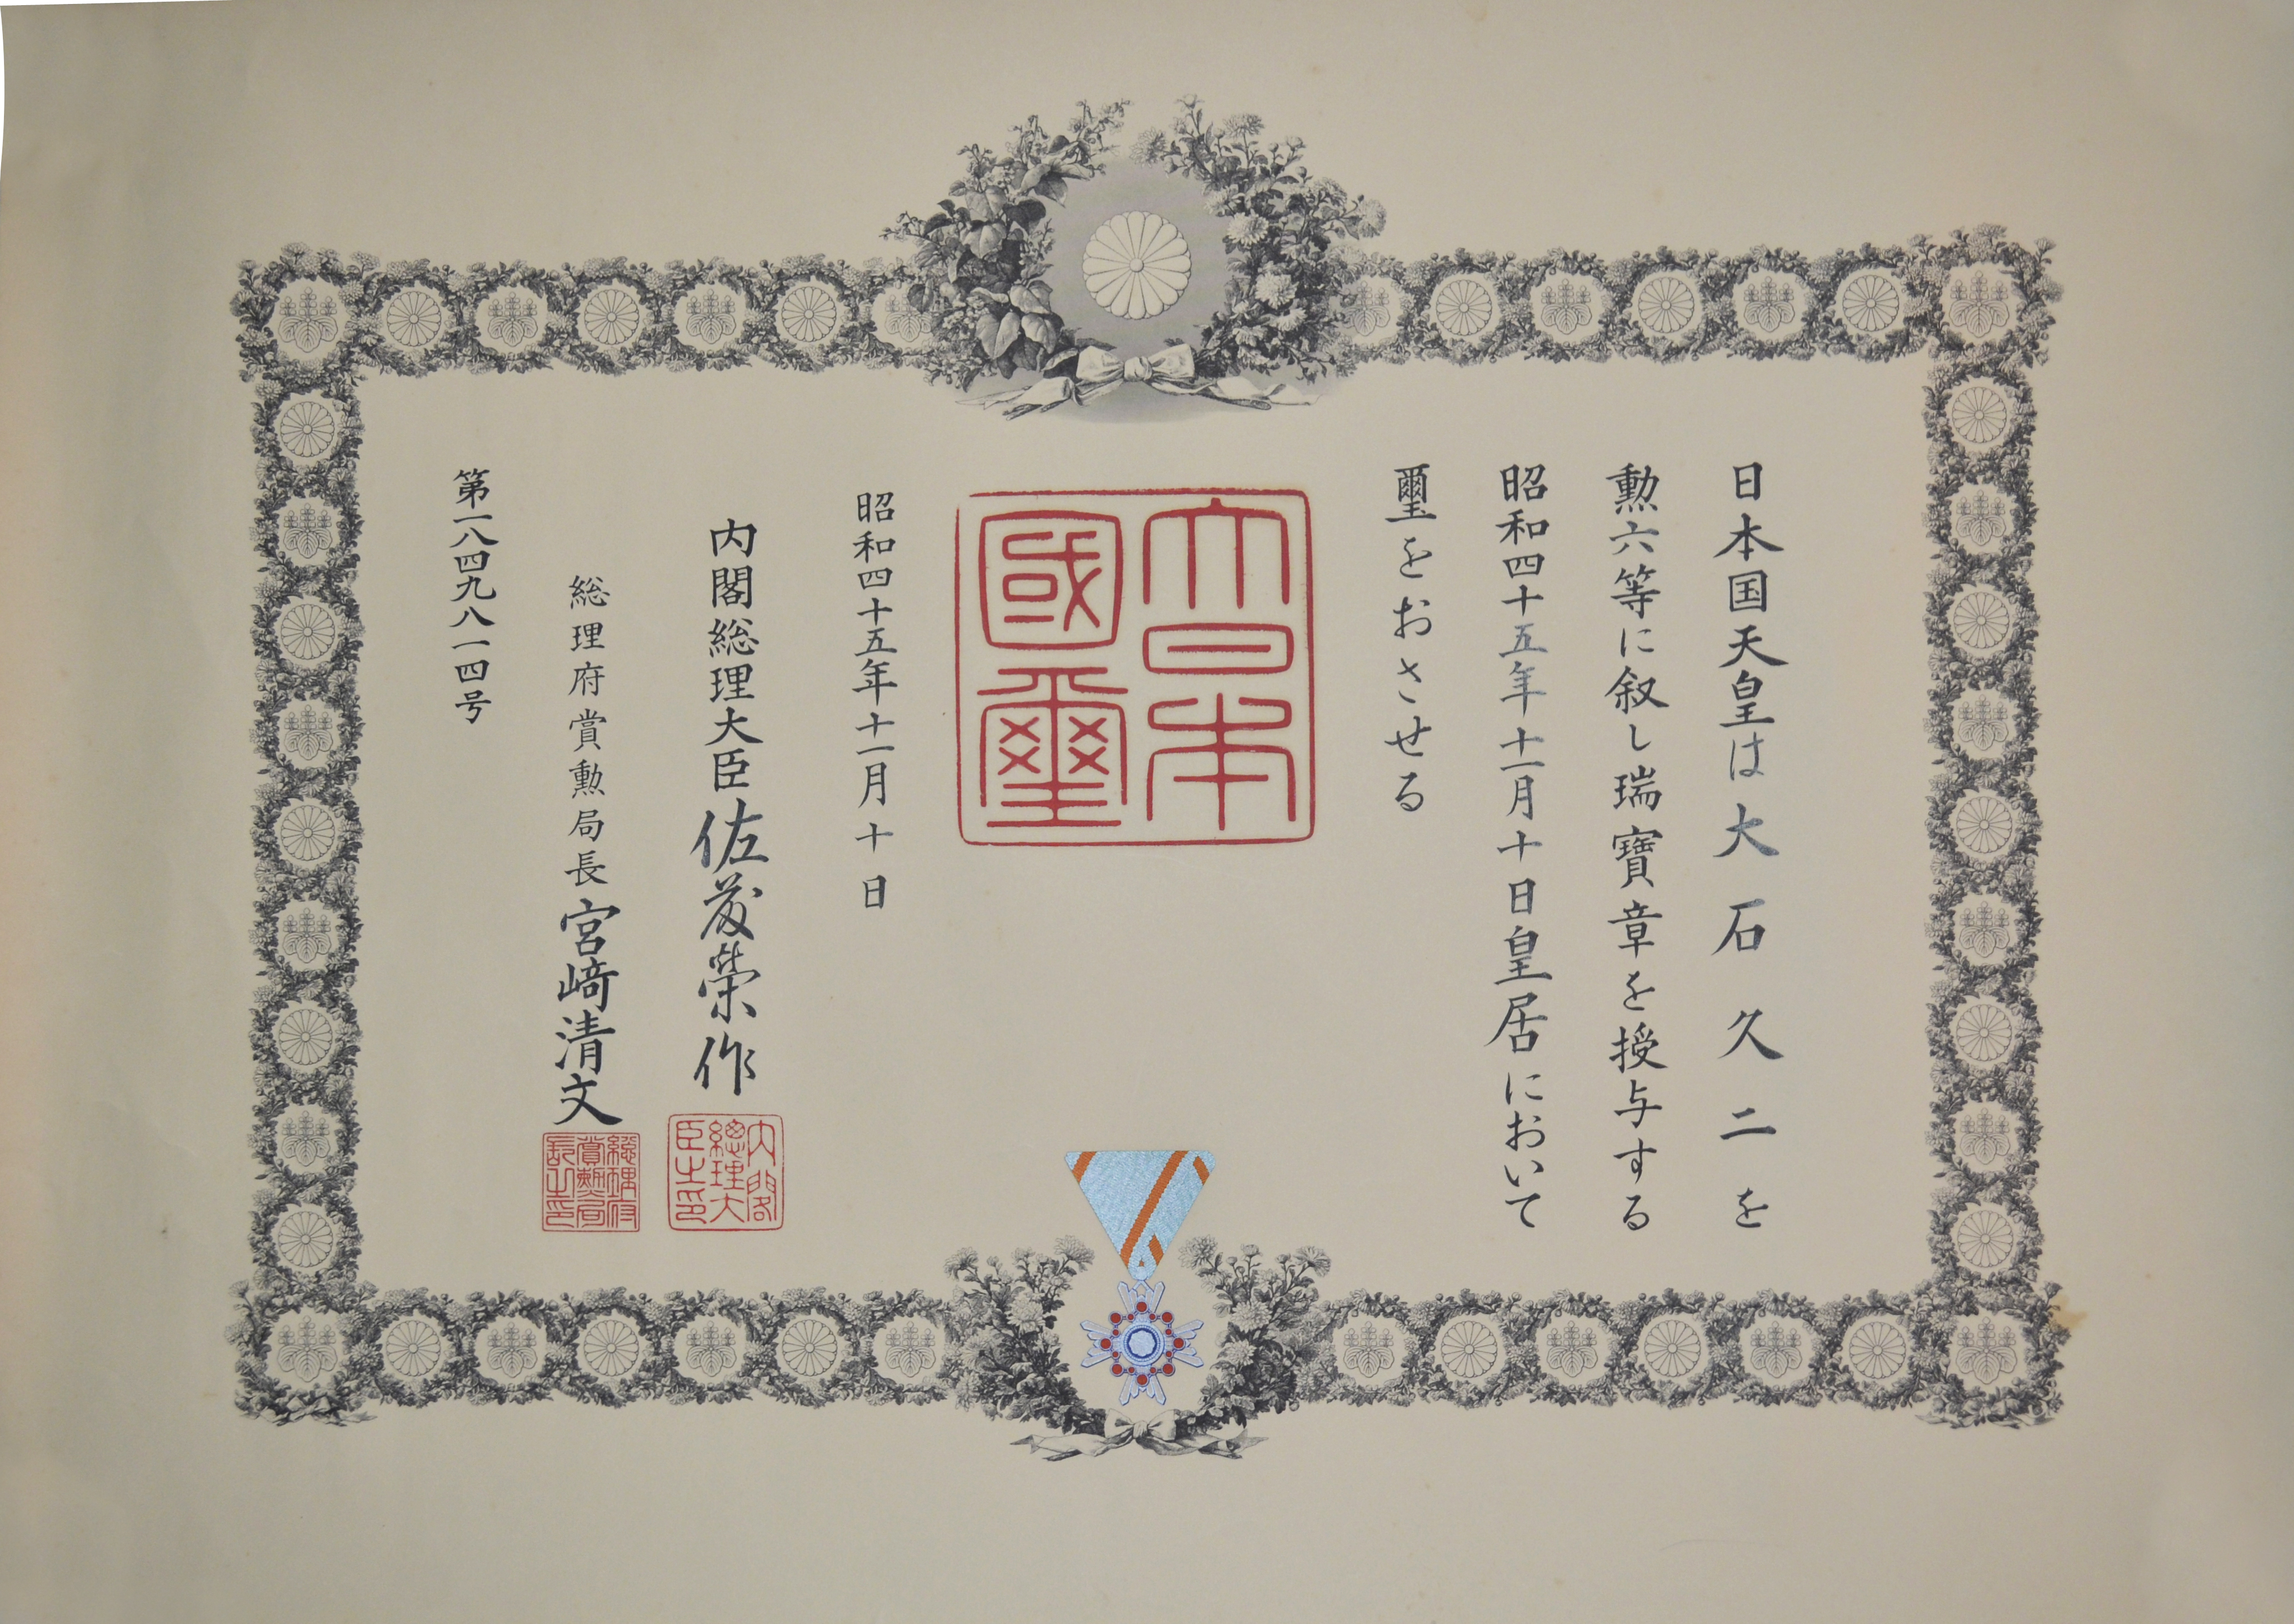 日本国天皇は大石久二を
勲六等に叙し瑞寶章を授与する
昭和四十五年十一月十日皇居において
璽をおさせる
大日本
國璽
昭和四十五年十一月十日
内閣総理大臣佐藤榮作
内閣
總理大
臣之印
総理府賞勲局長宮﨑清文
總理府
賞勲局
長之印
第一八四九八一四号